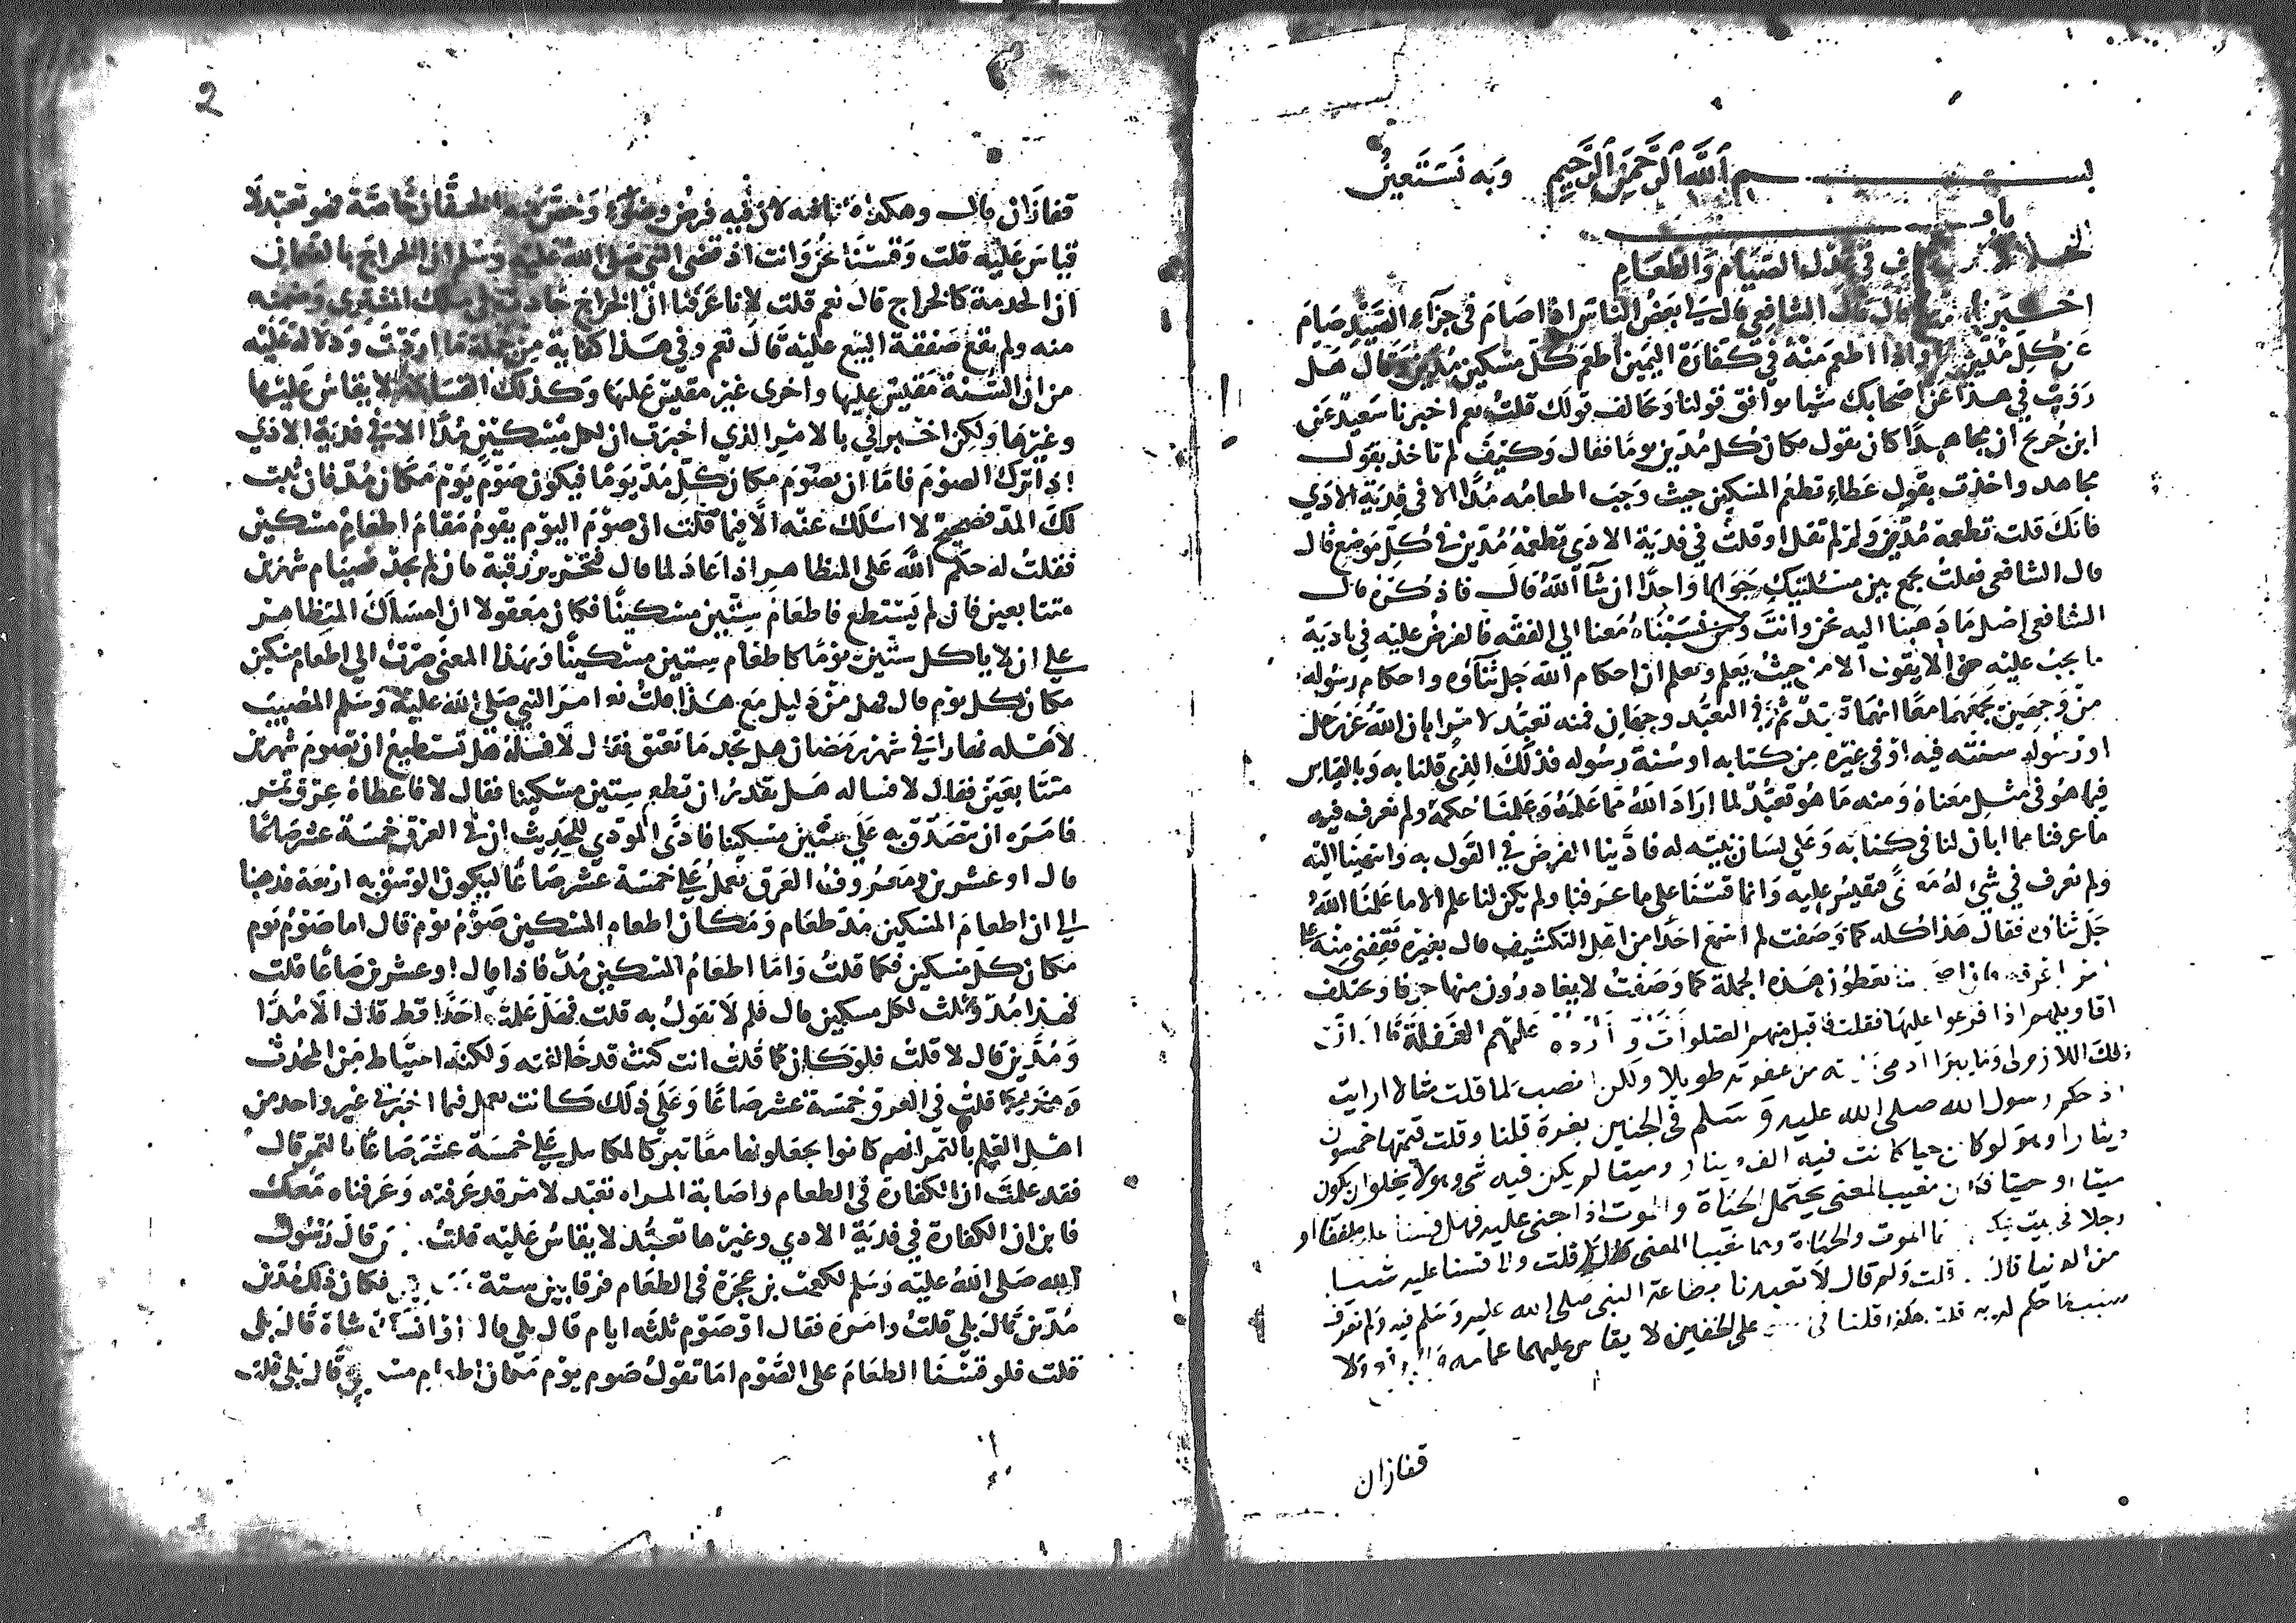 بسم الله الرحمن الرحيم وبه نستعين
باب
الخلاف في عدل الصيام والطعام
اخبرنا قال قال الشافعي قال لي بعض الناس اذا صام في جزاء الصيد صام
عن كل مدين يوما واذا اطعم منه في كفارة اليمين اطعم كل مسكين مدين وقال هل
رويت في هذا عن اصحابك شيا يوافق قولنا ويخالف قولك قلت نعم اخبرنا سعيد عن
ابن جريج ان مجاهدا كان يقول مكان كل مدين يوما فقال وكيف لم تاخذ بقول
مجاهد واخذت بقول عطاء تطعم المسكين حيث وجب اطعامه مدا الا في فدية الاذى
فانك قلت تطعمه مدين ولم لم تقل اذ قلت في فدية الاذى تطعمه مدين في كل موضع قال
قال الشافعي فقلت يجمع بين مسئلتيك جوابا واحدا ان شا الله قال فاذكره قال
الشافعي اصل ما ذهبنا اليه نحن وانت ومن نسبناه معنا الي الفقه فالفرض عليه في تادية
ما يجب عليه من الا يقول الا من حيث يعلم ويعلم ان احكام الله جل ثناؤه واحكام رسوله
من وجهين يجمعهما معا انهما تعبد ثم في التعبد وجهان فمنه تعبد لامر ابان الله عز وجل
او رسوله سببه فيه او في غيره من كتابه او سنة رسوله فذلك الذي قلنا به وبالقياس
فيما هو في مثل معناه ومنه ما هو تعبد لما اراد الله مما علمه وعلمنا حكمه ولم نعرف فيه
ما عرفنا مما ابان لنا في كتابه وعلي لسان نبيه له فادينا الفرض في القول به وانتهينا اليه
ولم نعرف في شي له معنى فنقيس عليه وانما قسنا علي ما عرفنا ولم يكن لنا علم الا ما علمنا الله
جل ثناؤه فقال هذا كله كما وصفت لم اسمع احدا من اهل التكشيف قال بغيره فقفني منه علي
امر اعرفه فان اصحابنا يعطون هذه الجملة كما وصفت لا يغادرون منها حرفا وتختلف
اقاويلهم اذا فرعوا عليها فقلت فاقبل منهم الصلوات واردد عليهم الغفلة قال ان
ذلك اللازم لي وما يبرا ادمي من غفلة طويلا ولكن انصب لما قلت مثالا ارايت
اذ حكم رسول الله صلى الله عليه وسلم في الجنين بغرة قلنا وقلت قيمتها خمسون
دينارا وهو لو كان حيا كانت فيه الف دينار وميتا لم يكن فيه شي وهو لا يخلو ان يكون
ميتا او حيا فكان مغيب المعنى يحتمل الحياة والموت اذا جنى عليه فهل قسنا عليه ملففا او
رجلا في بيت يمكن فيهما الموت والحياة وهما مغيبا المعنى قال لا قلت ولا قسنا عليه شيا
من الدنيا قال قلت ولم قال لا تعبدنا بطاعة النبي صلى الله عليه وسلم فيه ولم نعرف
سبب ما حكم له به قلت هكذا قلنا في على الخفين لا يقاس عليهما عمامة ولا
قفازان

2
قفازان قال وهكذا قلنا فيه لان فيه فرض وضوء وخص منه الخفان خاصة فهو تعبد لا
قياس عليه قلت وقسنا نحن وانت اذ قضى النبي صلى الله عليه وسلم ان الخراج بالضمان
ان الخدمة كالخراج قال نعم قلت لانا عرفنا ان الخراج حادث في ملك المشتري وضمنه
منه ولم يقع صفقة البيع عليه قال نعم وفي هذا كفاية من جملة ما اردت ودلالة عليه
من ان السنة مقيس عليها واخرى غير مقيس عليها وكذلك القسامة لا يقاس عليها
وغيرها ولكن اخبرني بالامر الذي اخبرت ان لكل مسكين مدا الا في فدية الاذي
اذا ترك الصوم فاما ان يصوم مكان كل مد يوما فيكون صوم يوم مكان مد فان ثبت
لك المد فصحيح لا اسئلك عنه الا فيما قلت ان صوم اليوم يقوم مقام اطعام مسكين
فقلت له حكم الله على المظاهر اذا عاد لما قال فتحرير رقبة فان لم يجد فصيام شهرين
متتابعين فان لم يستطع فاطعام ستين مسكينا فكان معقولا ان امساك المتظاهر
علي ان لا ياكل ستين يوما كاطعام ستين مسكينا وبهذا المعنى صرت الي اطعام مسكين
مكان كل يوم قال فهل من دليل مع هذا قلت نعم امر النبي صلى الله عليه وسلم المصيب
لاهله نهارا في شهر رمضان هل تجد ما تعتق فقال لا فسئله هل تستطيع ان تصوم شهرين
متتابعين فقال لا فساله هل تقدر ان تطعم ستين مسكينا فقال لا فاعطاه عرق تمر
فامره ان يتصدق به علي ستين مسكينا فادى المودي للحديث ان في العرق خمسة عشر صاعا
قال او عشرين ومعروف ان العرق يعمل علي خمسة عشر صاعا ليكون الوسق به اربعة فذهبنا
الي ان اطعام المسكين مد طعام ومكان اطعام المسكين صوم يوم قال اما صوم يوم
مكان كل مسكين فكما قلت واما اطعام المسكين مد فاذا قال او عشرين صاعا قلت
فهذا مد وثلث لكل مسكين قال فلم لا تقول به قلت فهل علمت احدا قط قال الا مدا
ومدين قال لا قلت فلو كان كما قلت انت كنت قد خالفته ولكنه احتياط من المحدث
وهو كما قلت في العرق خمسة عشر صاعا وعلى ذلك كانت يعمل فيما اخبرني غير واحد من
اهل العلم بالتمر انهم كانوا يجعلونها معايير كالمكاييل علي خمسة عشر صاعا بالتمر قال
فقد علمت ان الكفارة في الطعام واصابة المراه تعبد لامر قد عرفته وعرفناه معك
فابن ان الكفارة في فدية الاذي وغيرها تعبد لا يقاس عليه قلت قال رسول
الله صلى الله عليه وسلم لكعب بن عجرة في الطعام فرقا بين ستة فكان ذلك مدين
مدين قال بلى قلت وامره فقال او صوم ثلثة ايام قال بلي قال او انسك شاة قال بلى
قلت فلو قسنا الطعام على الصوم اما تقول صوم يوم مكان اطعام مسكين قال بلي قلت